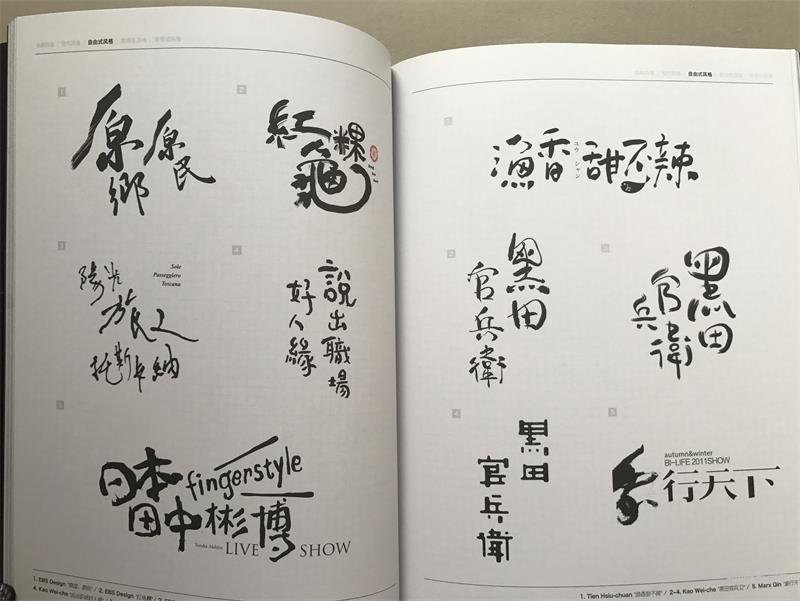 自由式风格
1
原鄉
原民
2
紅龜粿
3
陽光
旅人
托斯卡納
Sole
Passeggiero
Toscana
4
說出職場
好人緣
5
日本
fingerstyle
田中彬博
Tanaka Akihiro
LIVE SHOW
1. EBS Design "原鄉、原民" / 2. EBS Design "紅龜粿"
4. Kao Wei-che "說出職場好人緣"
自由式风格
1
漁香甜不辣
ユウ シャン
2
黑田
官兵衛
3
黑田
官兵衛
4
黑田
官兵衛
5
autumn&winter
BI-LIFE 2011SHOW
象行天下
1. Tien Hsiu-chuan "漁香甜不辣" / 2-4. Kao Wei-che "黑田官兵卫" / 5. Marx Qin "象行天下"